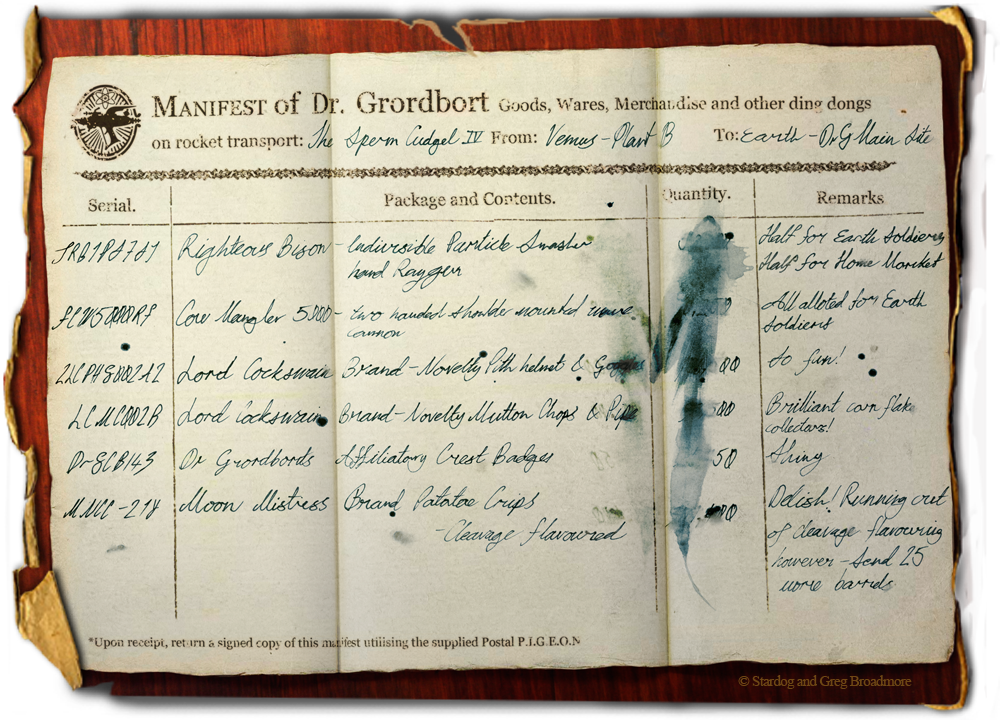 Manifest of Dr. Grordbort Goods, Wares, Merchandise and other ding dongs
on rocket transport: The Sperm Cudgel IV From: Venus - Plant B To: Earth - Dr G Main Site
Serial. Package and Contents. Quantity. Remarks
Righteous Bison - Indivisible Particle Smasher Half for Earth Soldiers
hand Raygun Half for Home Market
Cow Mangler 5000 - two handed shoulder mounted wave All alloted for Earth
cannon Soldiers
Lord Cockswain Brand - Novelty Pith helmet & Goggles 00 so fun!
LCMC002B Lord Cockswain Brand - Novelty Mutton Chops & Pipe 00 Brilliant corn flake
collectors!
DrGCB143 Dr Grordbords Affiliatory Crest Badges 50 Shiny
Moon Mistress Brand Patatoe Crisps 00 Delish! Running out
- Cleavage flavoured of cleavage flavouring
however - Send 25
more barrels
*Upon receipt, return a signed copy of this manifest utilising the supplied Postal P.I.G.E.O.N
© Stardog and Greg Broadmore